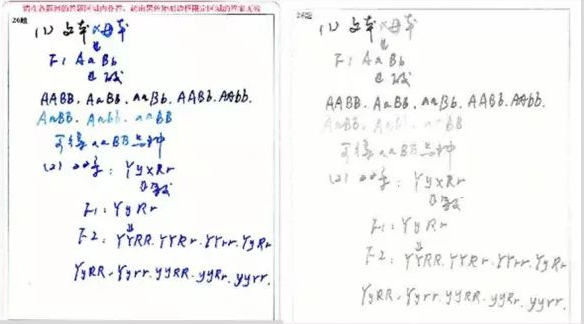 请在各题目的答题区域内作答，超出黑色矩形边框限定区域的答案无效
26题
(1) 父本×母本
F1 AaBb
自交
AABB. AaBb. aaBb. AABb. AAbb.
AaBB. Aabb. aaBB
可得aaBB品种
(2) : YyxRr
F1: YyRr
F2: YYRR. YYRr. YYrr. YyRr
YyRR. Yyrr. yyRR. yyRr. yyrr.
26题
(1) 父本×母本
F1 AaBb
自交
AABB. AaBb. aaBb. AABb. AAbb.
AaBB. Aabb. aaBB
可得aaBB品种
(2) : YyxRr
F1: YyRr
F2: YYRR. YYRr. YYrr. YyRr
YyRR. Yyrr. yyRR. yyRr. yyrr.